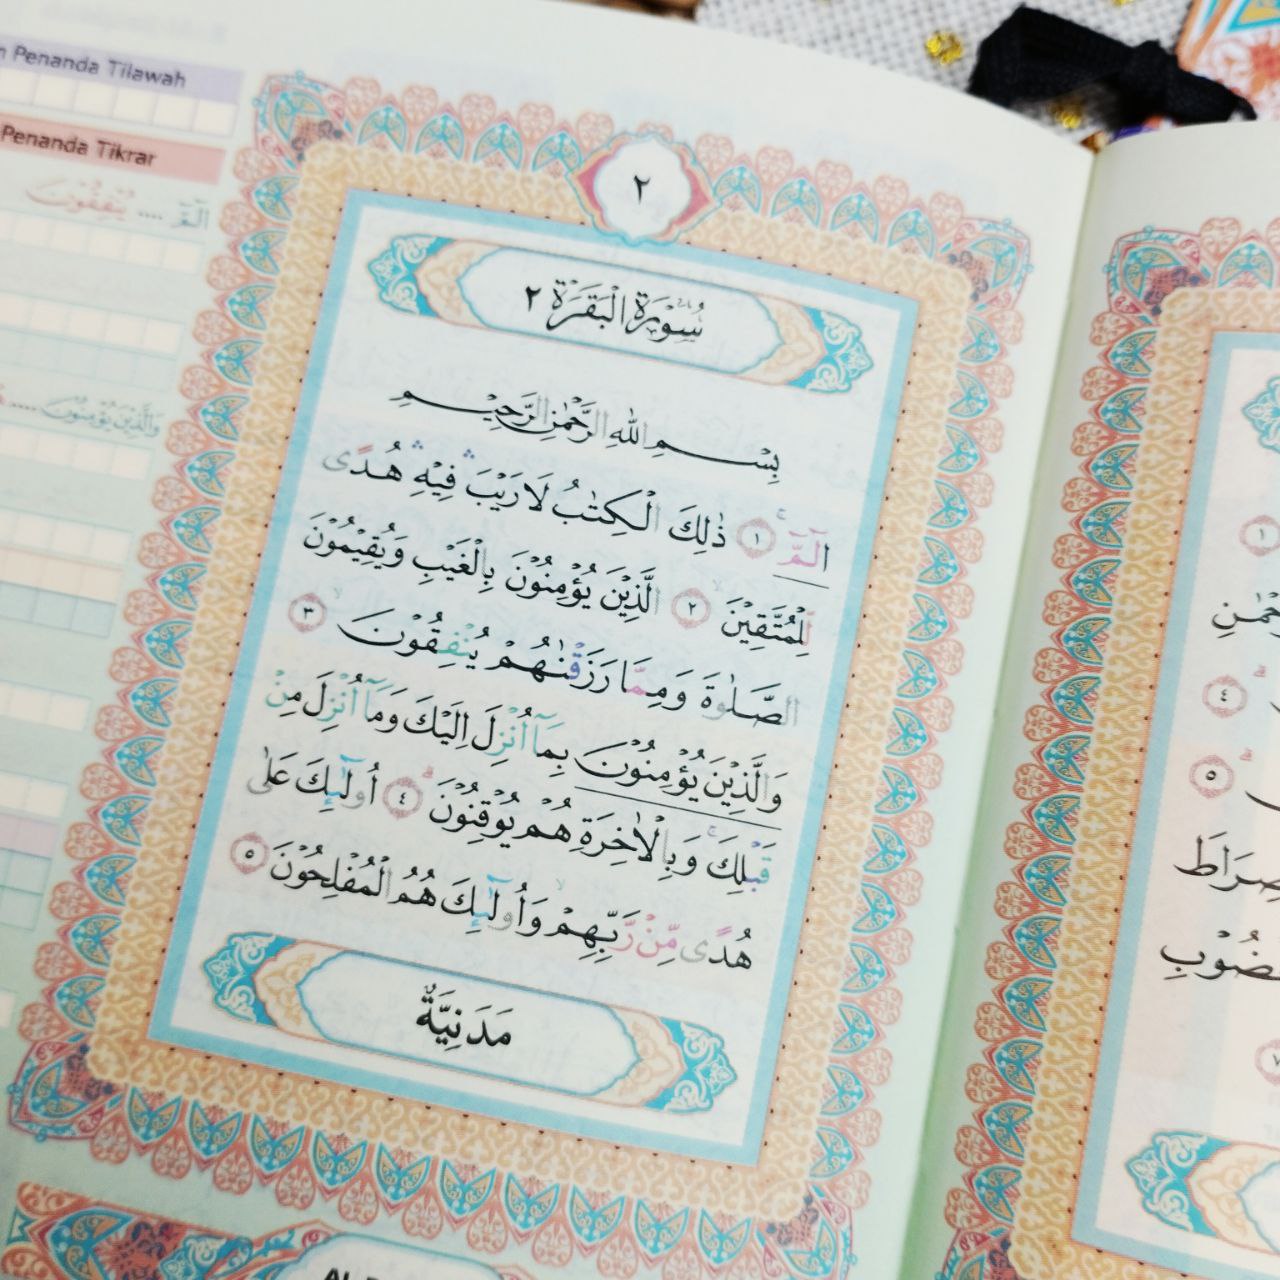 Penanda Tilawah
Penanda Tikrar
الۤمّۤ .... يُنْفِقُوْنَ
وَالَّذِيْنَ يُؤْمِنُوْنَ .....
٢
سُوْرَةُ الْبَقَرَة ٢
بِسْمِ اللّٰهِ الرَّحْمٰنِ الرَّحِيْمِ
الۤمّۤ ۚ ١ ذٰلِكَ الْكِتٰبُ لَا رَيْبَ ۛ فِيْهِ ۛ هُدًى
لِّلْمُتَّقِيْنَ ۙ ٢ الَّذِيْنَ يُؤْمِنُوْنَ بِالْغَيْبِ وَيُقِيْمُوْنَ
الصَّلٰوةَ وَمِمَّا رَزَقْنٰهُمْ يُنْفِقُوْنَ ۙ ٣
وَالَّذِيْنَ يُؤْمِنُوْنَ بِمَآ اُنْزِلَ اِلَيْكَ وَمَآ اُنْزِلَ مِنْ
قَبْلِكَ ۚ وَبِالْاٰخِرَةِ هُمْ يُوْقِنُوْنَ ۗ ٤ اُولٰۤىِٕكَ عَلٰى
هُدًى مِّنْ رَّبِّهِمْ ۙ وَاُولٰۤىِٕكَ هُمُ الْمُفْلِحُوْنَ ٥
مَدَنِيَّةٌ
١
٤
٥
صِرَاطَ
٧